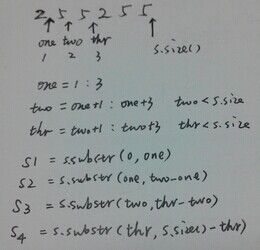 2 5 5 2 5 5
one two thr s.size()
1 2 3
one = 1 : 3
two = one+1 : one+3 two < s.size
thr = two+1 : two+3 thr < s.size
S1 = s.substr(0, one)
S2 = s.substr(one, two-one)
S3 = s.substr(two, thr-two)
S4 = s.substr(thr, s.size()-thr)